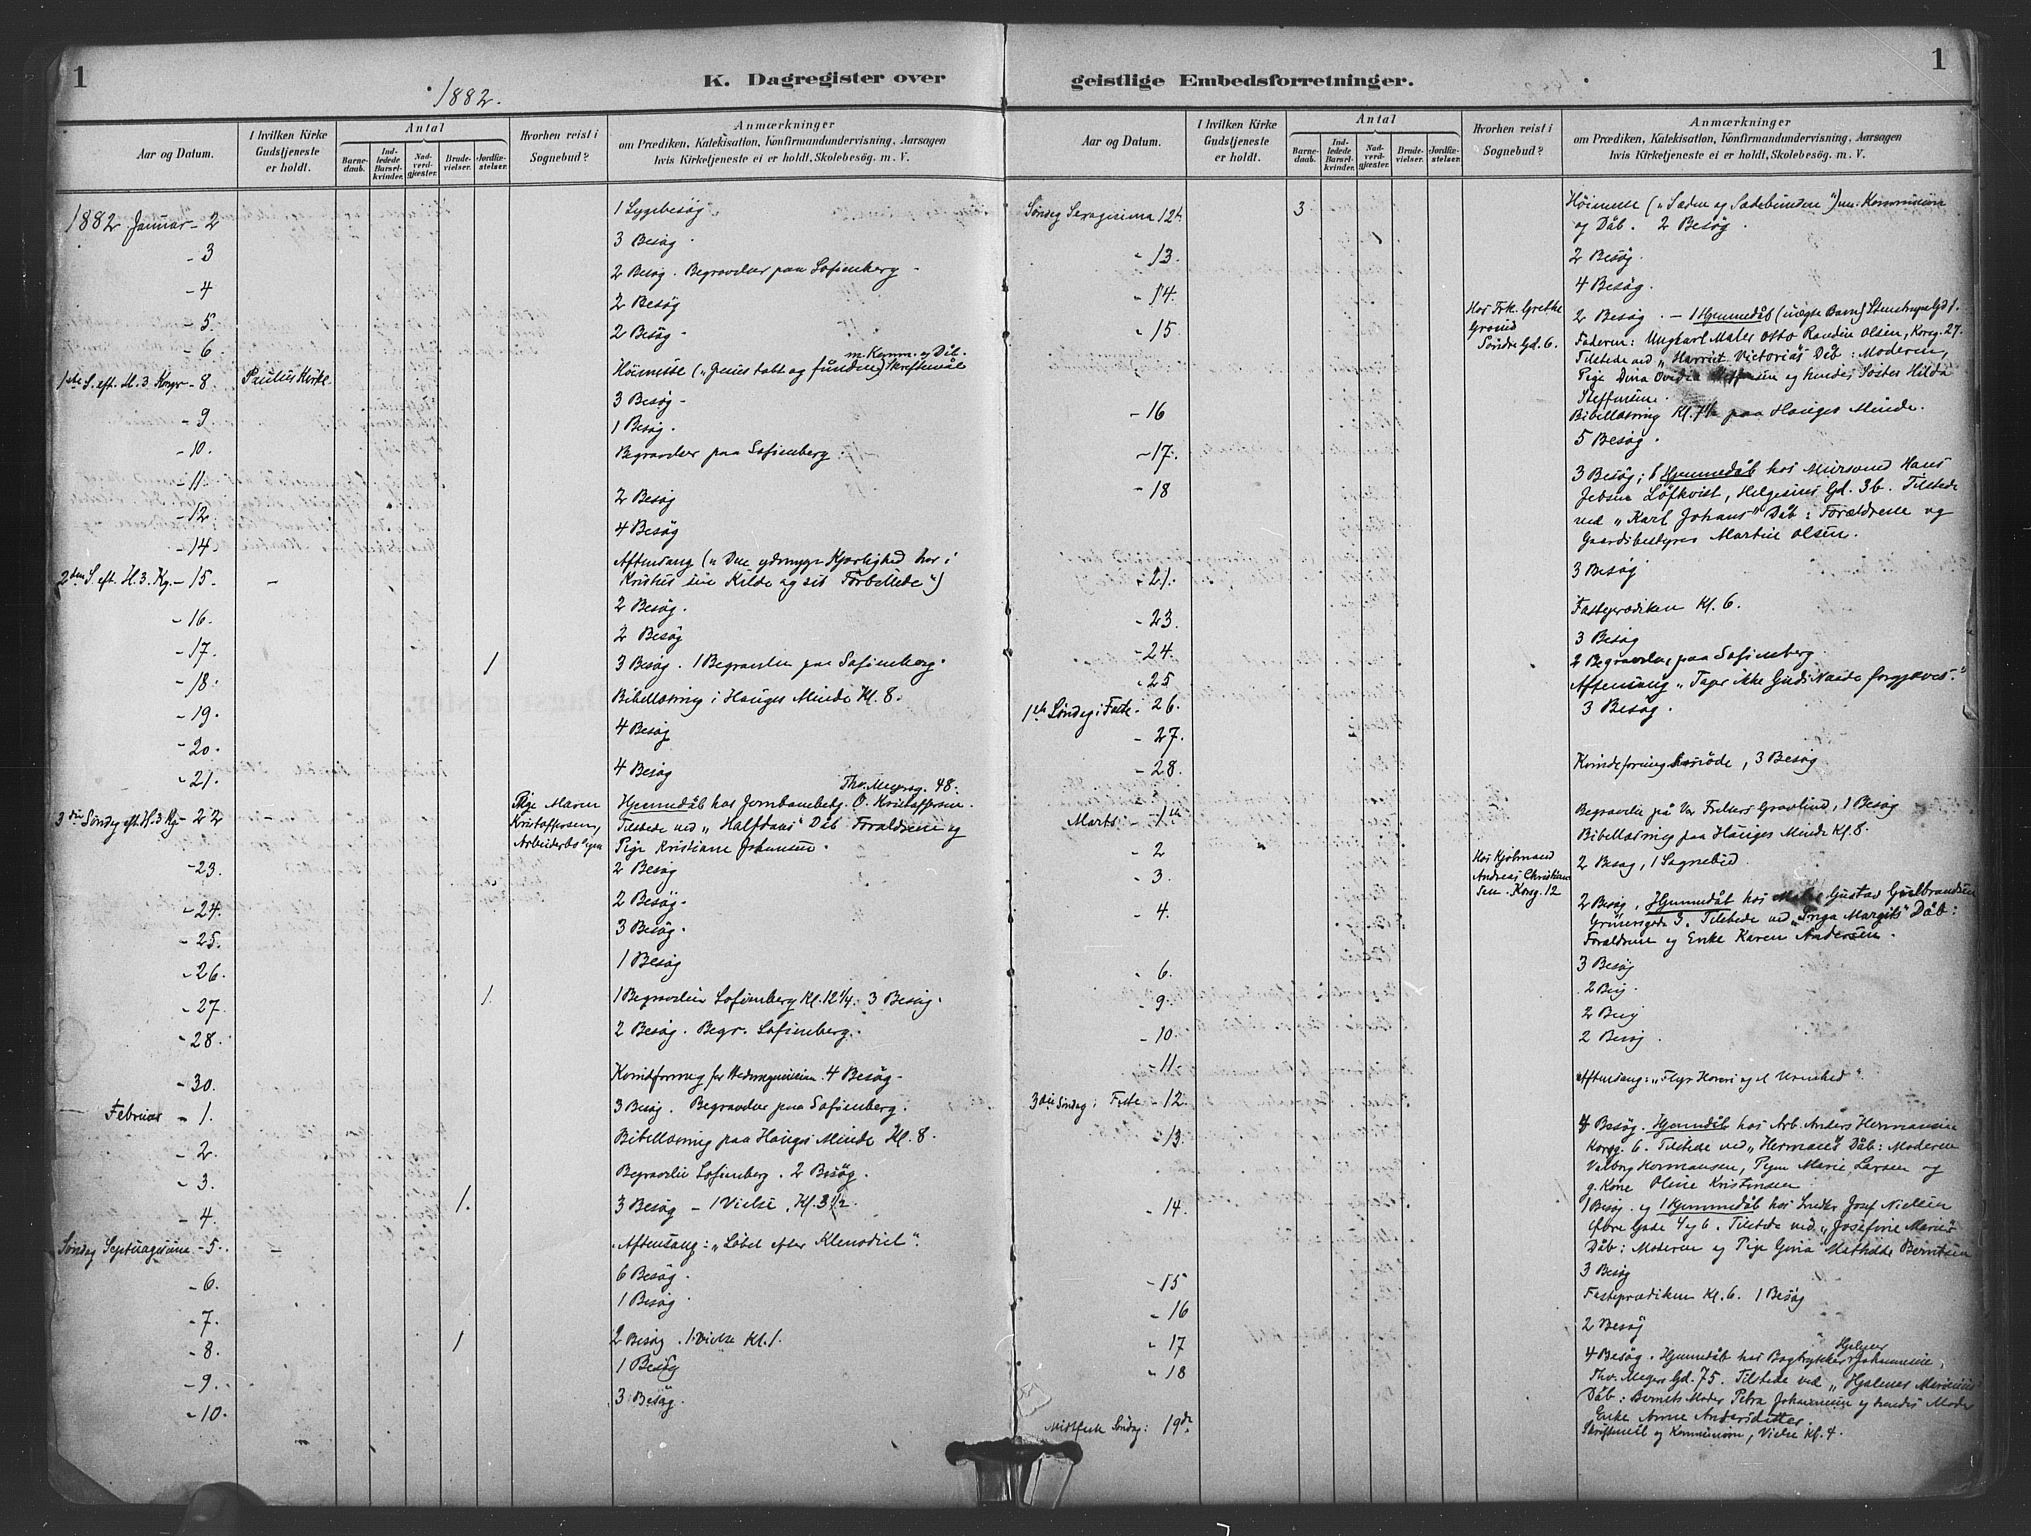 1
K. Dagregister over
1882.
Aar og Datum.
I hvilken Kirke Gudstjeneste er holdt.
Antal
Barne-daab.
Ind-ledede Barsel-kvinder.
Nad-verd-gjester.
Brude-vielser.
Jordfæ-stelser.
Hvorhen reist i Sognebud?
Anmærkninger
om Prædiken, Katekisation, Konfirmandundervisning, Aarsagen
hvis Kirketjeneste ei er holdt, Skolebesøg. m. V.
1882 Januar - 2 1 Sygebesøg
- 3 3 Besøg
- 4 2 Besøg. Begravelser paa Sofienberg
- 5. 2 Besøg
- 6 2 Besøg
1ste S. eft. H. 3 Kongr - 8 Paulus Kirke Høimesse („Jesus tabt og funden) Skriftemål
m. Komm. og Dåb.
- 9 3 Besøg
- 10. 1 Besøg.
- 11. Begravelser paa Sofienberg.
- 12 2 Besøg
- 14 4 Besøg
2den S. eft. H. 3. Kg. - 15. - Aftensang („Den ydmyge Kjærlighed har i
Kristus sin Kilde og sit Forbillede")
- 16. 2 Besøg.
- 17. 2 Besøg
- 18. 1 3 Besøg. 1 Begravelse paa Sofienberg.
- 19. Bibellæsning i Hauges Minde Kl. 8.
- 20. 4 Besøg
- 21. 4 Besøg
Thv. Meyersg. 48.
3die Søndag eft. H. 3 Kg - 22 - Pige Maren Kristoffersen, Hjemmedåb hos Jernbanebetj. O. Kristoffersen.
Tilstede ved „Halfdans" Dåb Forældrene og
Pige Kristiane Johansen.
- 23. 2 Besøg
- 24. 2 Besøg.
- 25. 3 Besøg.
- 26. 1 Besøg
- 27. 1. 1 Begravelse Sofienberg Kl. 12 1/4. 3 Besøg.
- 28. 2 Besøg. Begr. Sofienberg.
- 30. 4 Besøg.
Februar - 1. 3 Besøg. Begravelser paa Sofienberg.
- 2. Bibellæsning paa Hauges Minde Kl. 8.
- 3. Begravelse Sofienberg. 2 Besøg.
- 4 1. 3 Besøg - 1 Vielse, Kl. 3 1/2.
Søndag Septuagesima - 5. - Aftensang: „Løbet efter Klenodiet".
- 6. 6 Besøg.
- 7. 1 Besøg.
- 8. 1 2 Besøg. 1 Vielse Kl. 1.
- 9. 1 Besøg
- 10. 3 Besøg.
1
geistlige Embedsforretninger.
Aar og Datum.
I hvilken Kirke Gudstjeneste er holdt.
Antal
Barne-daab.
Ind-ledede Barsel-kvinder.
Nad-verd-gjester.
Brude-vielser.
Jordfæ-stelser.
Hvorhen reist i Sognebud?
Anmærkninger
om Prædiken, Katekisation, Konfirmandundervisning, Aarsagen
hvis Kirketjeneste ei er holdt, Skolebesøg. m. V.
Søndag Sexagesima 12te 3 Høimesse („Sæden og Sædebunden") m. Kommunion
og Dåb. 2 Besøg.
- 13. 2 Besøg.
- 14. 4 Besøg.
- 15 Hos Frk. Grethe Grønid Søndre Gd. 6. 2 Besøg. - 1 Hjemmedåb (uægte Barn) Stenstrups Gd 1.
Faderen: Ungkarl Maler Otto Randin Olsen, Korsg. 27.
Tilstede ved „Harriet Victorias" Dåb: Moderen,
Pige Dina Ovedia Steffensen og hendes Søster Hilda
Steffensen.
- 16 Bibellæsning Kl. 7 1/2 paa Hauges Minde.
- 17. 5 Besøg.
- 18 3 Besøg; 1 Hjemmedåb hos Mursvend Hans
Jebsen Löfkvist, Helgesens Gd. 3b. Tilstede
ved „Karl Johans" Dåb: Forældrene og
Gaardsbestyrer Martin Olsen.
- 21. 3 Besøg
- 23. Fasteprædiken Kl. 6.
- 24. 3 Besøg
- 25 2 Begravelser paa Sofienberg.
1ste Søndag i Faste - 26. Aftensang „Tager ikke Guds Naade forgjæves."
- 27. 3 Besøg.
- 28. Kvindeforeningsmøde, 3 Besøg
Marts - 1ste Begravelse på Vor Frelsers Gravlund, 1 Besøg
- 2 Bibellæsning paa Hauges Minde Kl. 8.
- 3. Hos Kjøbmand Andreas Christiansen. Korsg. 12 2 Besøg, 1 Sognebud.
- 4. 2 Besøg, Hjemmedåb hos Maler Gustav Gulbrandsen
Grünersgade 3. Tilstede ved „Inga Margits" Dåb:
Forældrene og Enke Karen Andersen.
- 6. 3 Besøg
- 9. 2 Besøg.
- 10. 2 Besøg
- 11. 2 Besøg
3die Søndag i Faste - 12. Aftensang:
- 13. 4 Besøg. Hjemmedåb hos Arb. Anders Hermansen
Korsg. 6. Tilstede ved „Hermans" Dåb: Moderen
Valborg Hermansen, Pigen Marie Larsen og
g. Kone Oline Kristensen.
- 14. 1 Besøg og 1 Hjemmedåb hos Snedker Josef Nielsen
Øvre Gade 4 og 6. Tilstede ved „Josefine Maries"
Dåb: Moderen og Pige Gina Mathilde Berntsen
- 15 3 Besøg
- 16 Fasteprædiken Kl. 6. 1 Besøg
- 17 2 Besøg
- 18 4 Besøg. Hjemmedåb hos Bogtrykker Johannesen,
Thv. Meyers Gd. 75. Tilstede ved
Dåb: Barnets Moder Petra Johannesen og hendes Moder
Enke Anne Andersdatter.
Midtfaste Søndag: 19de. Skriftemål og Kommunion, Vielse Kl. 4.